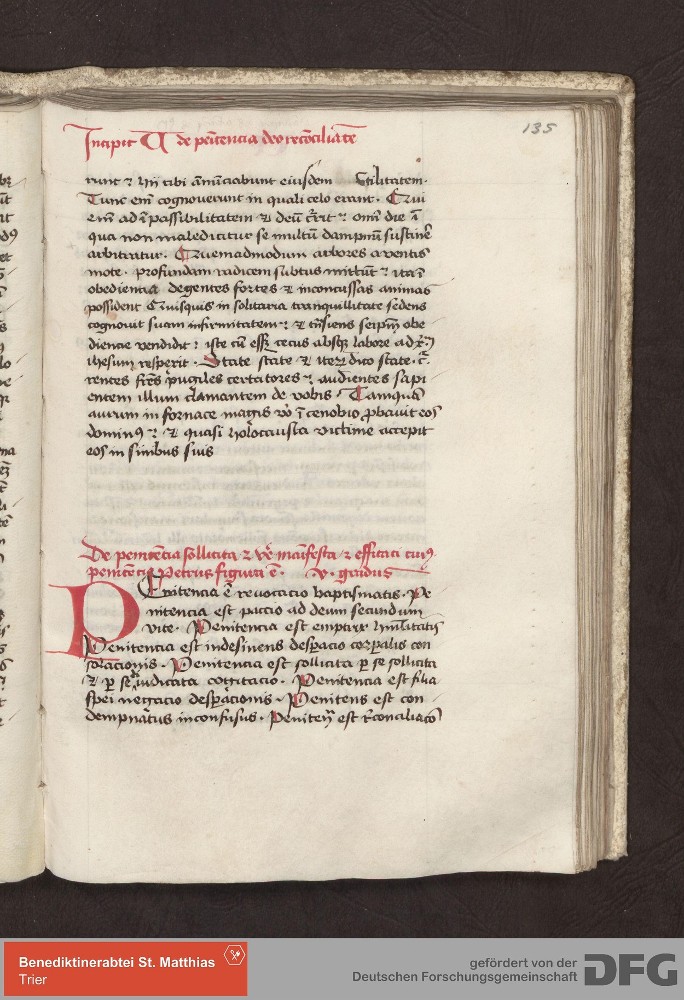 135
Incipit V de penitencia deo reconciliate
runt et hii tibi annunciabunt eiusdem Vtilitatem.
Tunc enim cognouerunt in quali celo errant. Qui
enim ad inpassibilitatem et deum currit omni die in
qua non maledicitur se multum dampnum sustinere
arbitratur. Quemadmodum arbores a ventis
mote. profundam radicem subtus mittunt ita in
obediencia degentes fortes et inconcussas animas
possident Quisquis in solitaria tranquillitate sedens
cognouit suam infirmitatem et transiens seipsum obe
diencie vendidit iste cum esset cecus absque labore ad xpm
ihesum respexit. State state et iterum dico state. cur
rentes fratres pugiles certatores et audientes sapi
entem illum clamantem de vobis Tamquam
aurum in fornace magis vero in cenobio probauit eos
dominus et quasi holocausta victime accepit
eos in sinibus suis
De penitencia sollicita et vere manifesta et efficaci cuius
penitencie Petrus figura est. v. gradus
PEnitencia est reuocacio baptismatis. Pe
nitencia est paccio ad deum secundum
vite. Penitencia est emptrix humilitatis
Penitencia est indesinens desperacio corporalis con
solacionis. Penitencia est sollicita per se sollicita
et per se iudicata cogitacio. Penitencia est filia
spei negacio desperacionis. Penitens est con
dempnatus inconfusus. Penitencia est reconciliacio
Benediktinerabtei St. Matthias
Trier
gefördert von der
Deutschen Forschungsgemeinschaft DFG